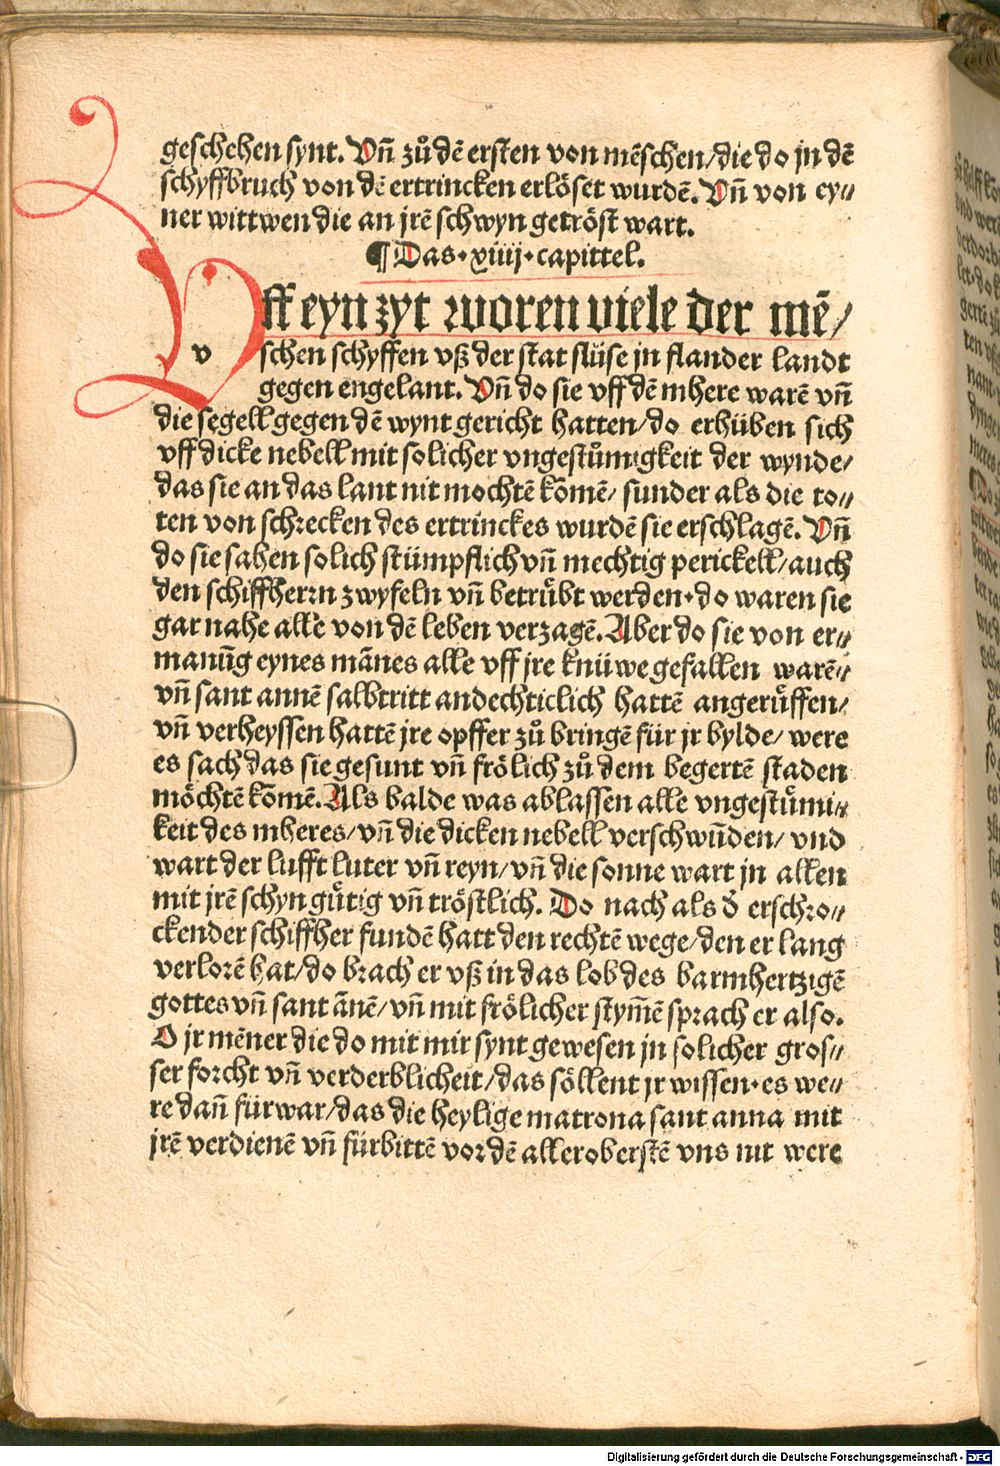 geschehen synt. Vñ zů dē ersten von mēschen/die do jn dē
schyffbruch von dē ertrincken erlöset wurdē. Vñ von ey⸗
ner wittwen die an jrē schwyn getröst wart.
¶ Das·xiiij·capittel.
Vff eyn zyt woren viele der mē/
v schen schyffen vß der stat slüse jn flander landt
gegen engelant. Vñ do sie vff dē mhere warē vñ
die segell gegen dē wynt gericht hatten/do erhüben sich
vff dicke nebell mit solicher vngestůmigkeit der wynde/
das sie an das lant nit mochtē kōmē/ sunder als die to⸗
ten von schrecken des ertrinckes wurdē sie erschlagē. Vñ
do sie sahen solich stümpflich vñ mechtig perickell/auch
den schiffherrn zwyfeln vñ betrůbt werden·do waren sie
gar nahe alle von dē leben verzagē. Aber do sie von er⸗
manūg eynes mānes alle vff jre knüwe gefallen warē⸗
vñ sant annē salbtritt andechticlich hattē angerůffen/
vñ verheyssen hattē jre opffer zů bringē für jr bylde/ were
es sach das sie gesunt vñ frölich zů dem begertē staden
möchtē kōmē. Als balde was ablassen alle vngestůmi⸗
keit des mheres/vñ die dicken nebell verschwūden/ vnd
wart der lufft luter vñ reyn/vñ die sonne wart jn allen
mit jrē schyn gůtig vñ tröstlich. Do nach als d̄ erschro⸗
ckender schiffher fundē hatt den rechtē wege/den er lang
verlorē hat/do brach er vß in das lob des barmhertzigē
gottes vñ sant ānē/vñ mit frölicher stym̄e sprach er also.
O jr mēner die do mit mir synt gewesen jn solicher gros⸗
ser forcht vñ verderblicheit/das söllent jr wissen·es we⸗
re dañ fürwar/das die heylige matrona sant anna mit
jrē verdienē vñ fürbittē vor dē alleroberstē vns nit were
Digitalisierung gefördert durch die Deutsche Forschungsgemeinschaft - DFG